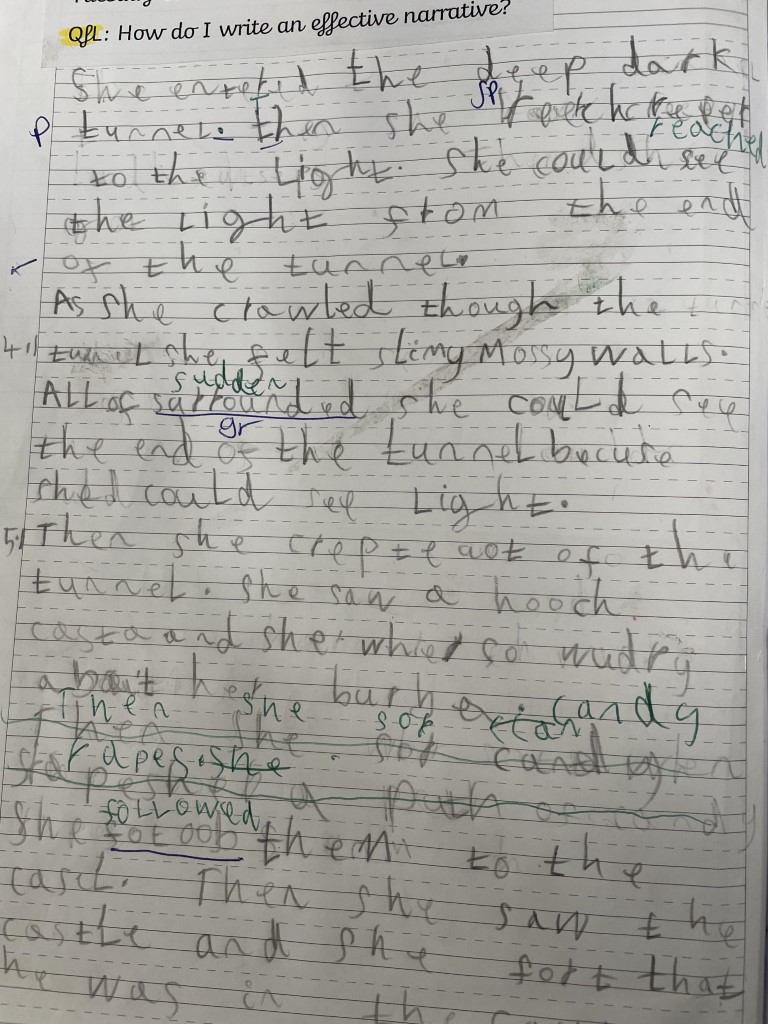 QfL: How do I write an effective narrative?
She enreted the deep dark
P tunnel. then she sp
reached
to the Light. She could see
the Light from the end
of the tunnel.
As she crawled though the
4. tunnel she felt slimy Mossy walls.
sudden
ALL of surrounded she could see
gr
the end of the tunnel becuse
shed could see Light.
5. Then she crepte aot of the
tunnel. She saw a hooch
casta and she so wudry
about her burhe. candy
Then she sor
Then she sor
rapes. she
a path
followed
She them to the
casL. Then she saw the
castLe and she fort that
he was in the